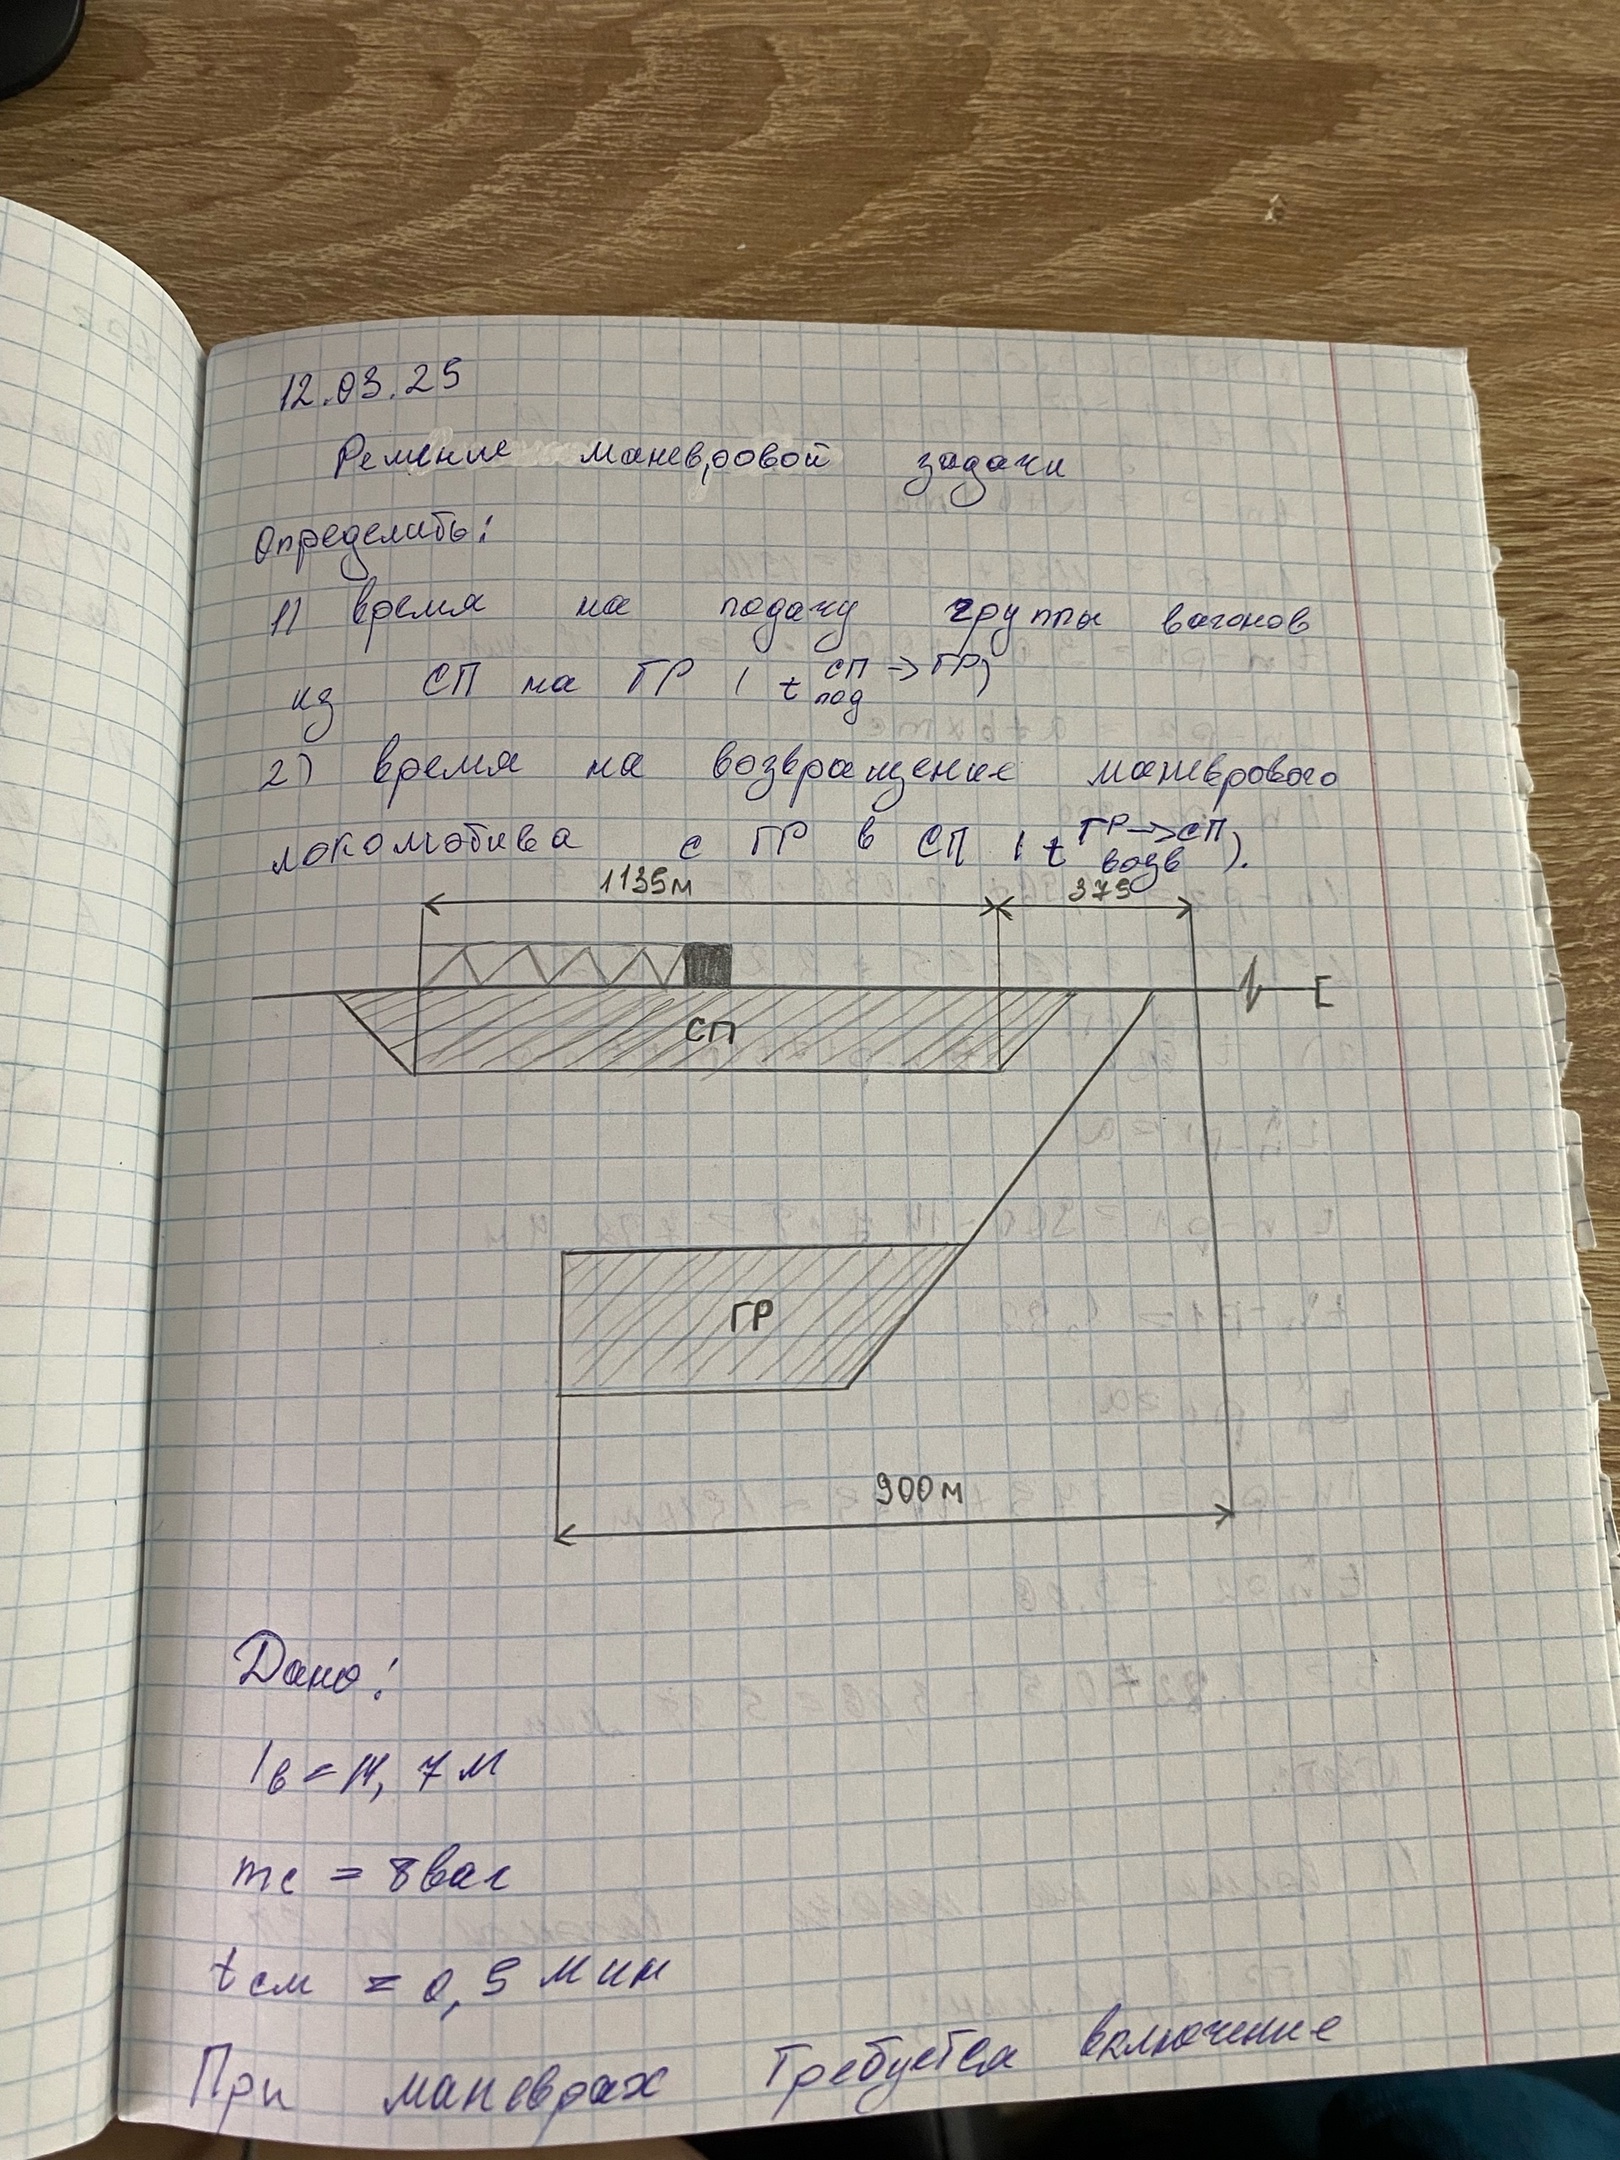 12.03.25
Решение маневровой задачи
Определить:
1) время на подачу группы вагонов
из СП на ГР ( t под СП → ГР)
2) время на возвращение маневрового
локомотива с ГР в СП ( t возв ГР → СП ).
1135м 375
СП
ГР
900м
Дано:
lв = 14,7 м
mc = 8 ваг
tсм = 0,5 мин
При маневрах требуется включение